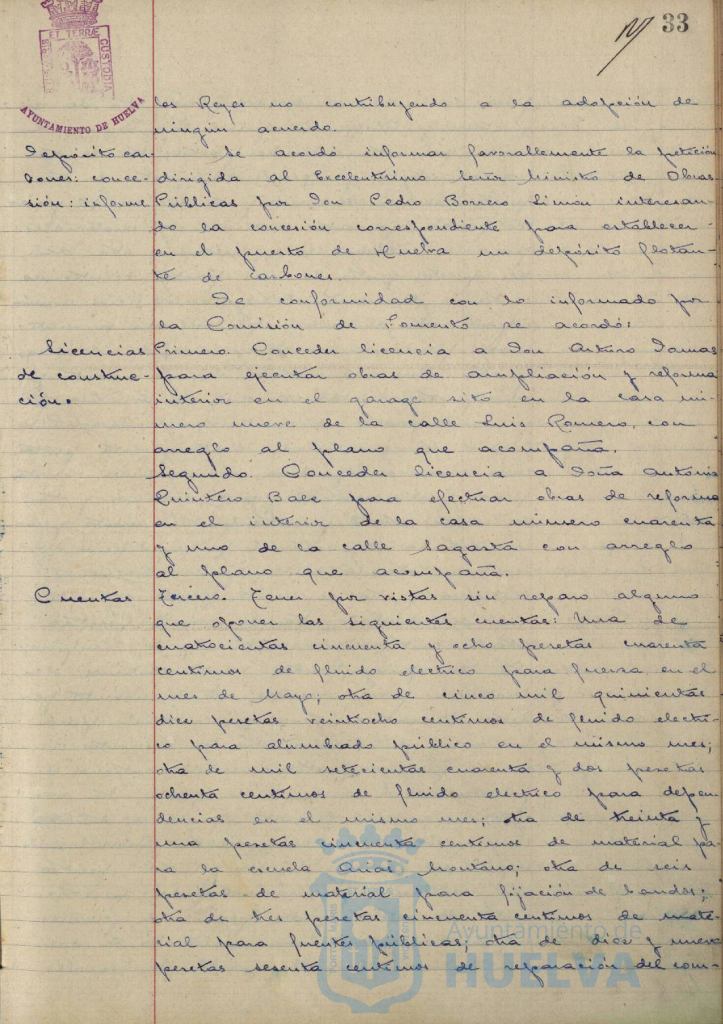 33
ET TERRÆ
CUSTODIA
AYUNTAMIENTO DE HUELVA
los Reyes no contribuyendo a la adopción de
ningun acuerdo.
Depósito car-
bones: conce-
sión: informe
Se acordó informar favorablemente la petición
dirigida al Excelentísimo Señor Ministro de Obras
Públicas por Don Pedro Borrero Simón interesan-
do la concesión correspondiente para establecer
en el puerto de Huelva un depósito flotan-
te de carbones.
De conformidad con lo informado por
la Comisión de Fomento se acordó:
Licencias
de construc-
ción.
Primero. Conceder licencia a Don Arturo Damas
para ejecutar obras de ampliación y reforma
interior en el garage sito en la casa nú-
mero nueve de la calle Luis Romero, con
arreglo al plano que acompaña.
Segundo. Conceder licencia a Doña Antonia
Quintero Baez para efectuar obras de reforma
en el interior de la casa número cuarenta
y uno de la calle Sagasta con arreglo
al plano que acompaña.
Cuentas
Tercero. Tener por vistas sin reparo alguno
que oponer las siguientes cuentas: Una de
cuatrocientas cincuenta y ocho pesetas cuarenta
centimos de fluido electrico para fuerza en el
mes de Mayo; otra de cinco mil quinientas
diez pesetas veintiocho centimos de fluido electri-
co para alumbrado público en el mismo mes;
otra de mil setecientas cuarenta y dos pesetas
ochenta centimos de fluido electrico para depen-
dencias en el mismo mes; otra de treinta y
una pesetas cincuenta centimos de material pa-
ra la escuela Arias Montano; otra de seis
pesetas de material para fijación de bandos;
otra de tres pesetas cincuenta centimos de mate-
rial para fuentes públicas; otra de diez y nueve
pesetas sesenta centimos de reparación del com-
Ayuntamiento de
HUELVA